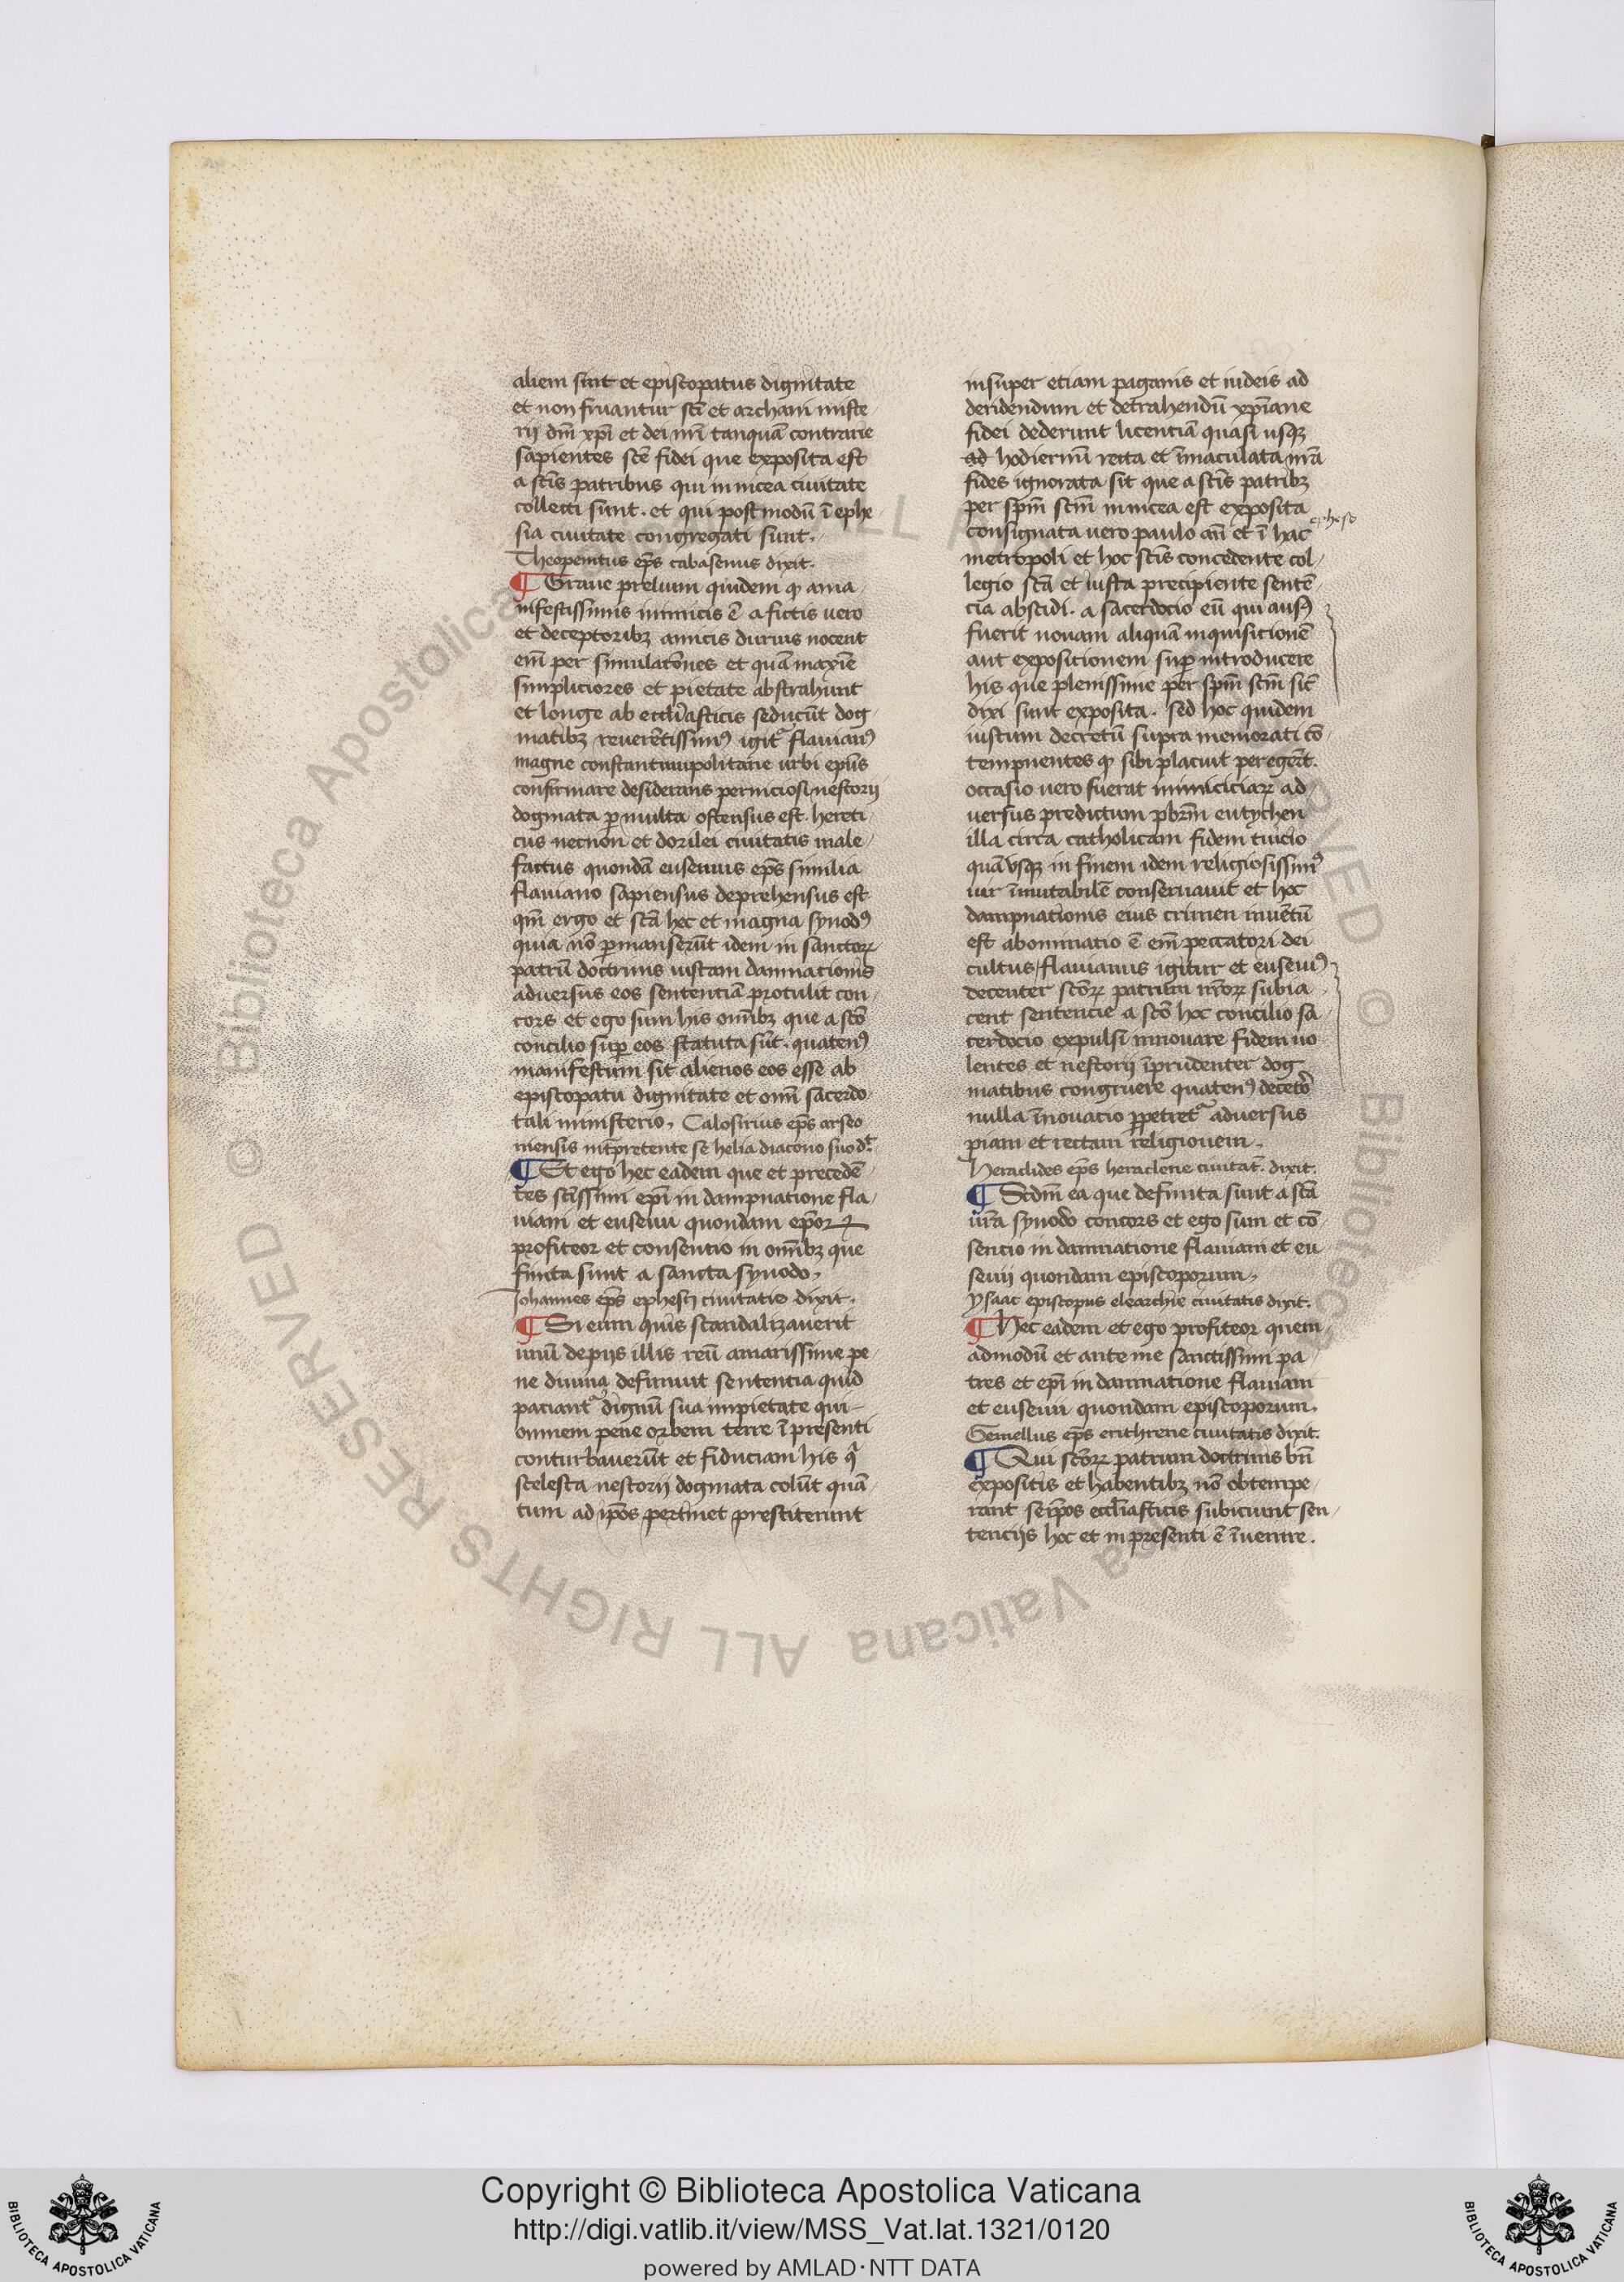 alieni sint et episcopatus dignitate
et non fruantur scī et archani miste
rij dm̄ xp̄i et dei nr̄i tanquā contrarie
sapientes scē fidei que exposita est
a scīs patribus qui in nicea ciuitate
collecti sunt . et qui postmodū ī ephe
sia ciuitate congregati sunt .
Theopentus ep̄s cabasenus dixit .
¶ Graue prelium quidem q a ma
nifestissimis inimicis ē a fictis vero
et deceptoribꝫ amicis durius nocent
em̄ per simulatōnes et quā maxīe
simpliciores et pietate abstrahunt
et longe ab eccl̄iasticis seducūt dog
matibꝫ reuerētissimꝰ igit᷑ flauianꝰ
magne constantinopolitane urbi epūs
confirmare desiderans perniciosi nestorij
dogmata ꝑ multa ostensus est . hereti
cus necnon et dorilei ciuitatis male
factus quondā euseuius ep̄s similia
flauiano sapiensus deprehensus est
qm̄ ergo et scā hec et magna synodꝰ
quia nō ꝑmanserūt idem in sanctoꝝ
patrū doctrinis iustam damnationis
aduersus eos sententiā protulit con
cors et ego sum his omībꝫ que a scō
concilio suꝑ eos statuta sūt . quatenꝰ
manifestum sit alienos eos esse ab
episcopatu dignitate et omī sacerdo
tali ministerio , Calosirius ep̄s arseo
mensis int̄pretente se helia diacono suo d.t
¶ Et ego hec eadem que et precedē
tes scīssimi ep̄i in dampnatione fla
uiani et euseuu quondam ep̄oꝝ
profiteor et consentio in omībꝫ que
finita sunt a sancta synodo ,
Johannes ep̄s ephesti ciuitatis dixit .
¶ Si eum quis scandalizauerit
unū de pijs illis reū amarissime pe
ne diuina definiuit sententia quid
paciant᷑ dignū sua impietate qui
omnem pene orbem terre ī presenti
conturbauerūt et fiduciam his q̄
scelesta nestorij dogmata colūt quā
tum ad ip̄os pertinet prestiterunt
insuper etiam paganis et iudeis ad
deridendum et detrahendū xp̄iane
fidei dederunt licentiā quasi usqꝫ
ad hodiernū recta et īmaculata nr̄a
fides ignorata sit que a scīs patribꝫ
per sp̄m scm̄ in nicea est exposita
consignata vero paulo an̄ et ī hac
epheso
metropoli et hoc scīs concedente col
legio scā et iusta precipiente sentē
cia abscidi . a sacerdocio eū qui ausꝰ
fuerit nouam aliquā inquisitionē
aut expositionem suꝑ introducere
his que plenissime per sp̄m scm̄ sic̄
dixi sunt exposita . sed hoc quidem
iustum decretū supra memorati cō
tempnentes q sibi placuit peregerūt .
occasio vero fuerat inimicitiaꝝ ad
versus predictum pbr̄m eutychen
illa circa catholicam fidem tuicio
quā vsqꝫ in finem idem religiosissimꝰ
uir īmutabilē conseruauit et hoc
dampnationis eius crimen inuētū
est abominatio ē em̄ peccatori dei
cultus / flauianus igitur et euseuiꝰ
decenter scōꝝ patrum nr̄oꝝ subia
cent sentencie a scō hoc concilio sa
cerdocio expulsi innouare fidem uo
lentes et nestorij īprudenter dog
matibus congruere quatenꝰ decetō
nulla īnouacio ꝑpetret᷑ aduersus
piam et rectam religionem .
Heraclides ep̄s heraclene ciuitat̄ . dixit .
¶ Scdm̄ ea que definita sunt a scā
ur̄a synodo concors et ego sum et cō
sencio in damnatione flauiani et eu
seuij quondam episcoporum ,
Ysaac episcopus elearchie ciuitatis dixit .
¶ Hec eadem et ego profiteor quem
admodū et ante me sanctissimi pa
tres et ep̄i in damnatione flauiani
et euseuu quondam episcoporum .
Gemellus ep̄s erithrene ciuitatis dixit .
¶ Qui scōꝝ patrum doctrinis bn̄
expositis et habentibꝫ nō obtempe
rant seip̄os eccl̄iasticis subiciunt sen
tencijs hoc et in presenti ē īuenire .
Copyright © Biblioteca Apostolica Vaticana
http://digi.vatlib.it/view/MSS_Vat.lat.1321/0120
powered by AMLAD·NTT DATA
BIBLIOTECA APOSTOLICA VATICANA
BIBLIOTECA APOSTOLICA VATICANA
© Biblioteca Apostolica Vaticana ALL RIGHTS RESERVED